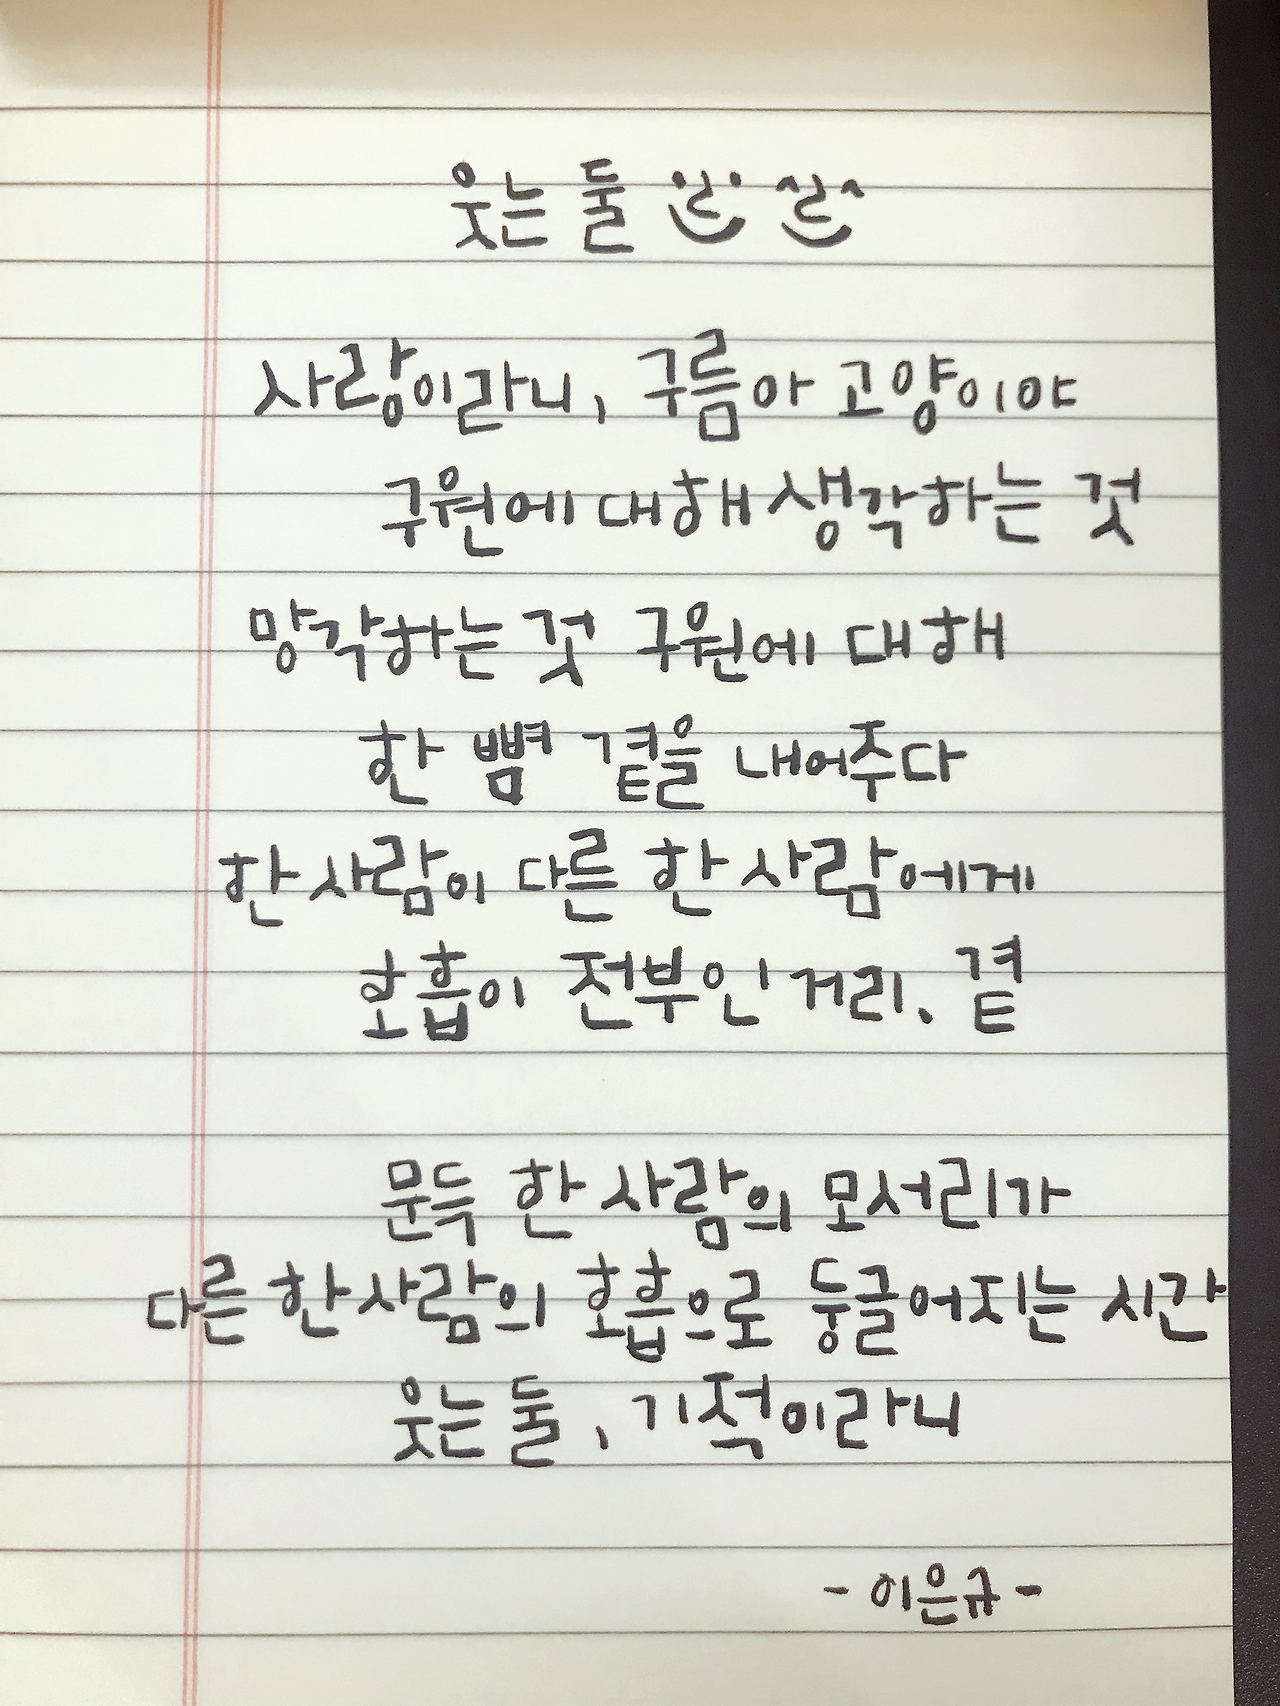 웃는 둘
사랑이라니, 구름아 고양이야
구원에 대해 생각하는 것
망각하는 것 구원에 대해
한 뼘 곁을 내어주다
한 사람이 다른 한 사람에게
호흡이 전부인 거리, 곁
문득 한 사람의 모서리가
다른 한 사람의 호흡으로 둥글어지는 시간
웃는 둘, 기적이라니
- 이은규 -